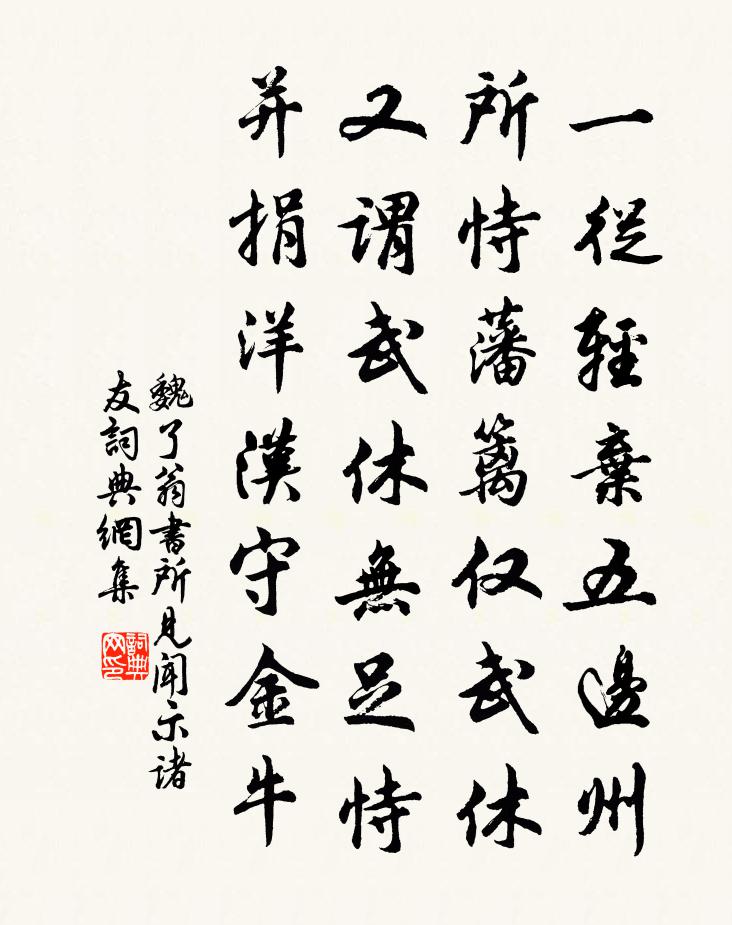 一從輕棄五邊州
所恃藩籬仅武休
又謂武休無足恃
并捐洋漢守金牛
魏了翁書所見聞示诸
友詞典網集
詞典网印